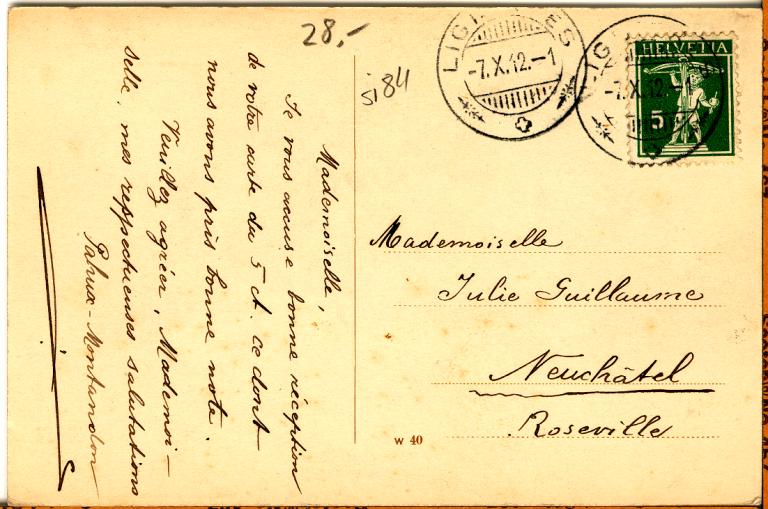 28,-
si84
-7.X.12.-1
-7.X.12.-1
HELVETIA
5
Mademoiselle,
Je vous accuse bonne réception
de votre carte du 5 ct. ce dont
nous avons pris bonne note.
Veuillez agréer, Mademoi-
selle, mes respectueuses salutations
Montandon
Mademoiselle
Julie Guillaume
Neuchâtel
Roseville
W 40